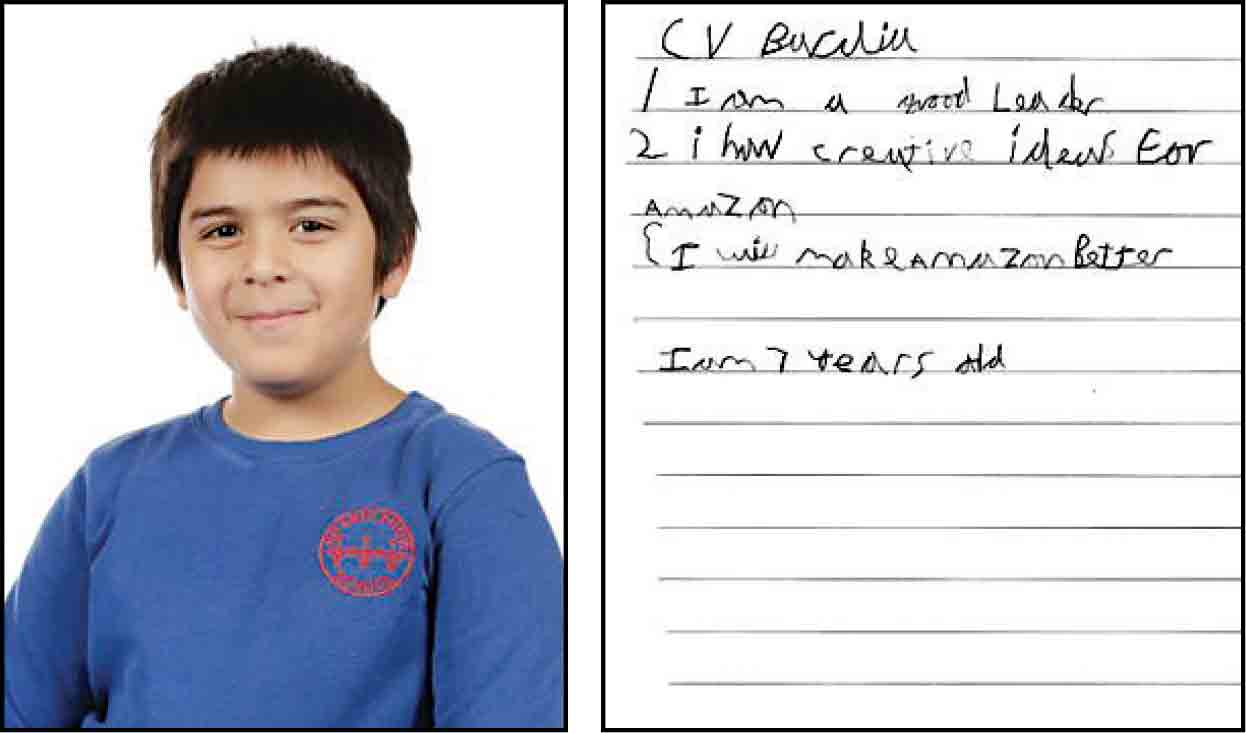 CV
1 I am a good Leader
2 i have creative ideas For
Amazon
I will make Amazon Better
I am 7 years old